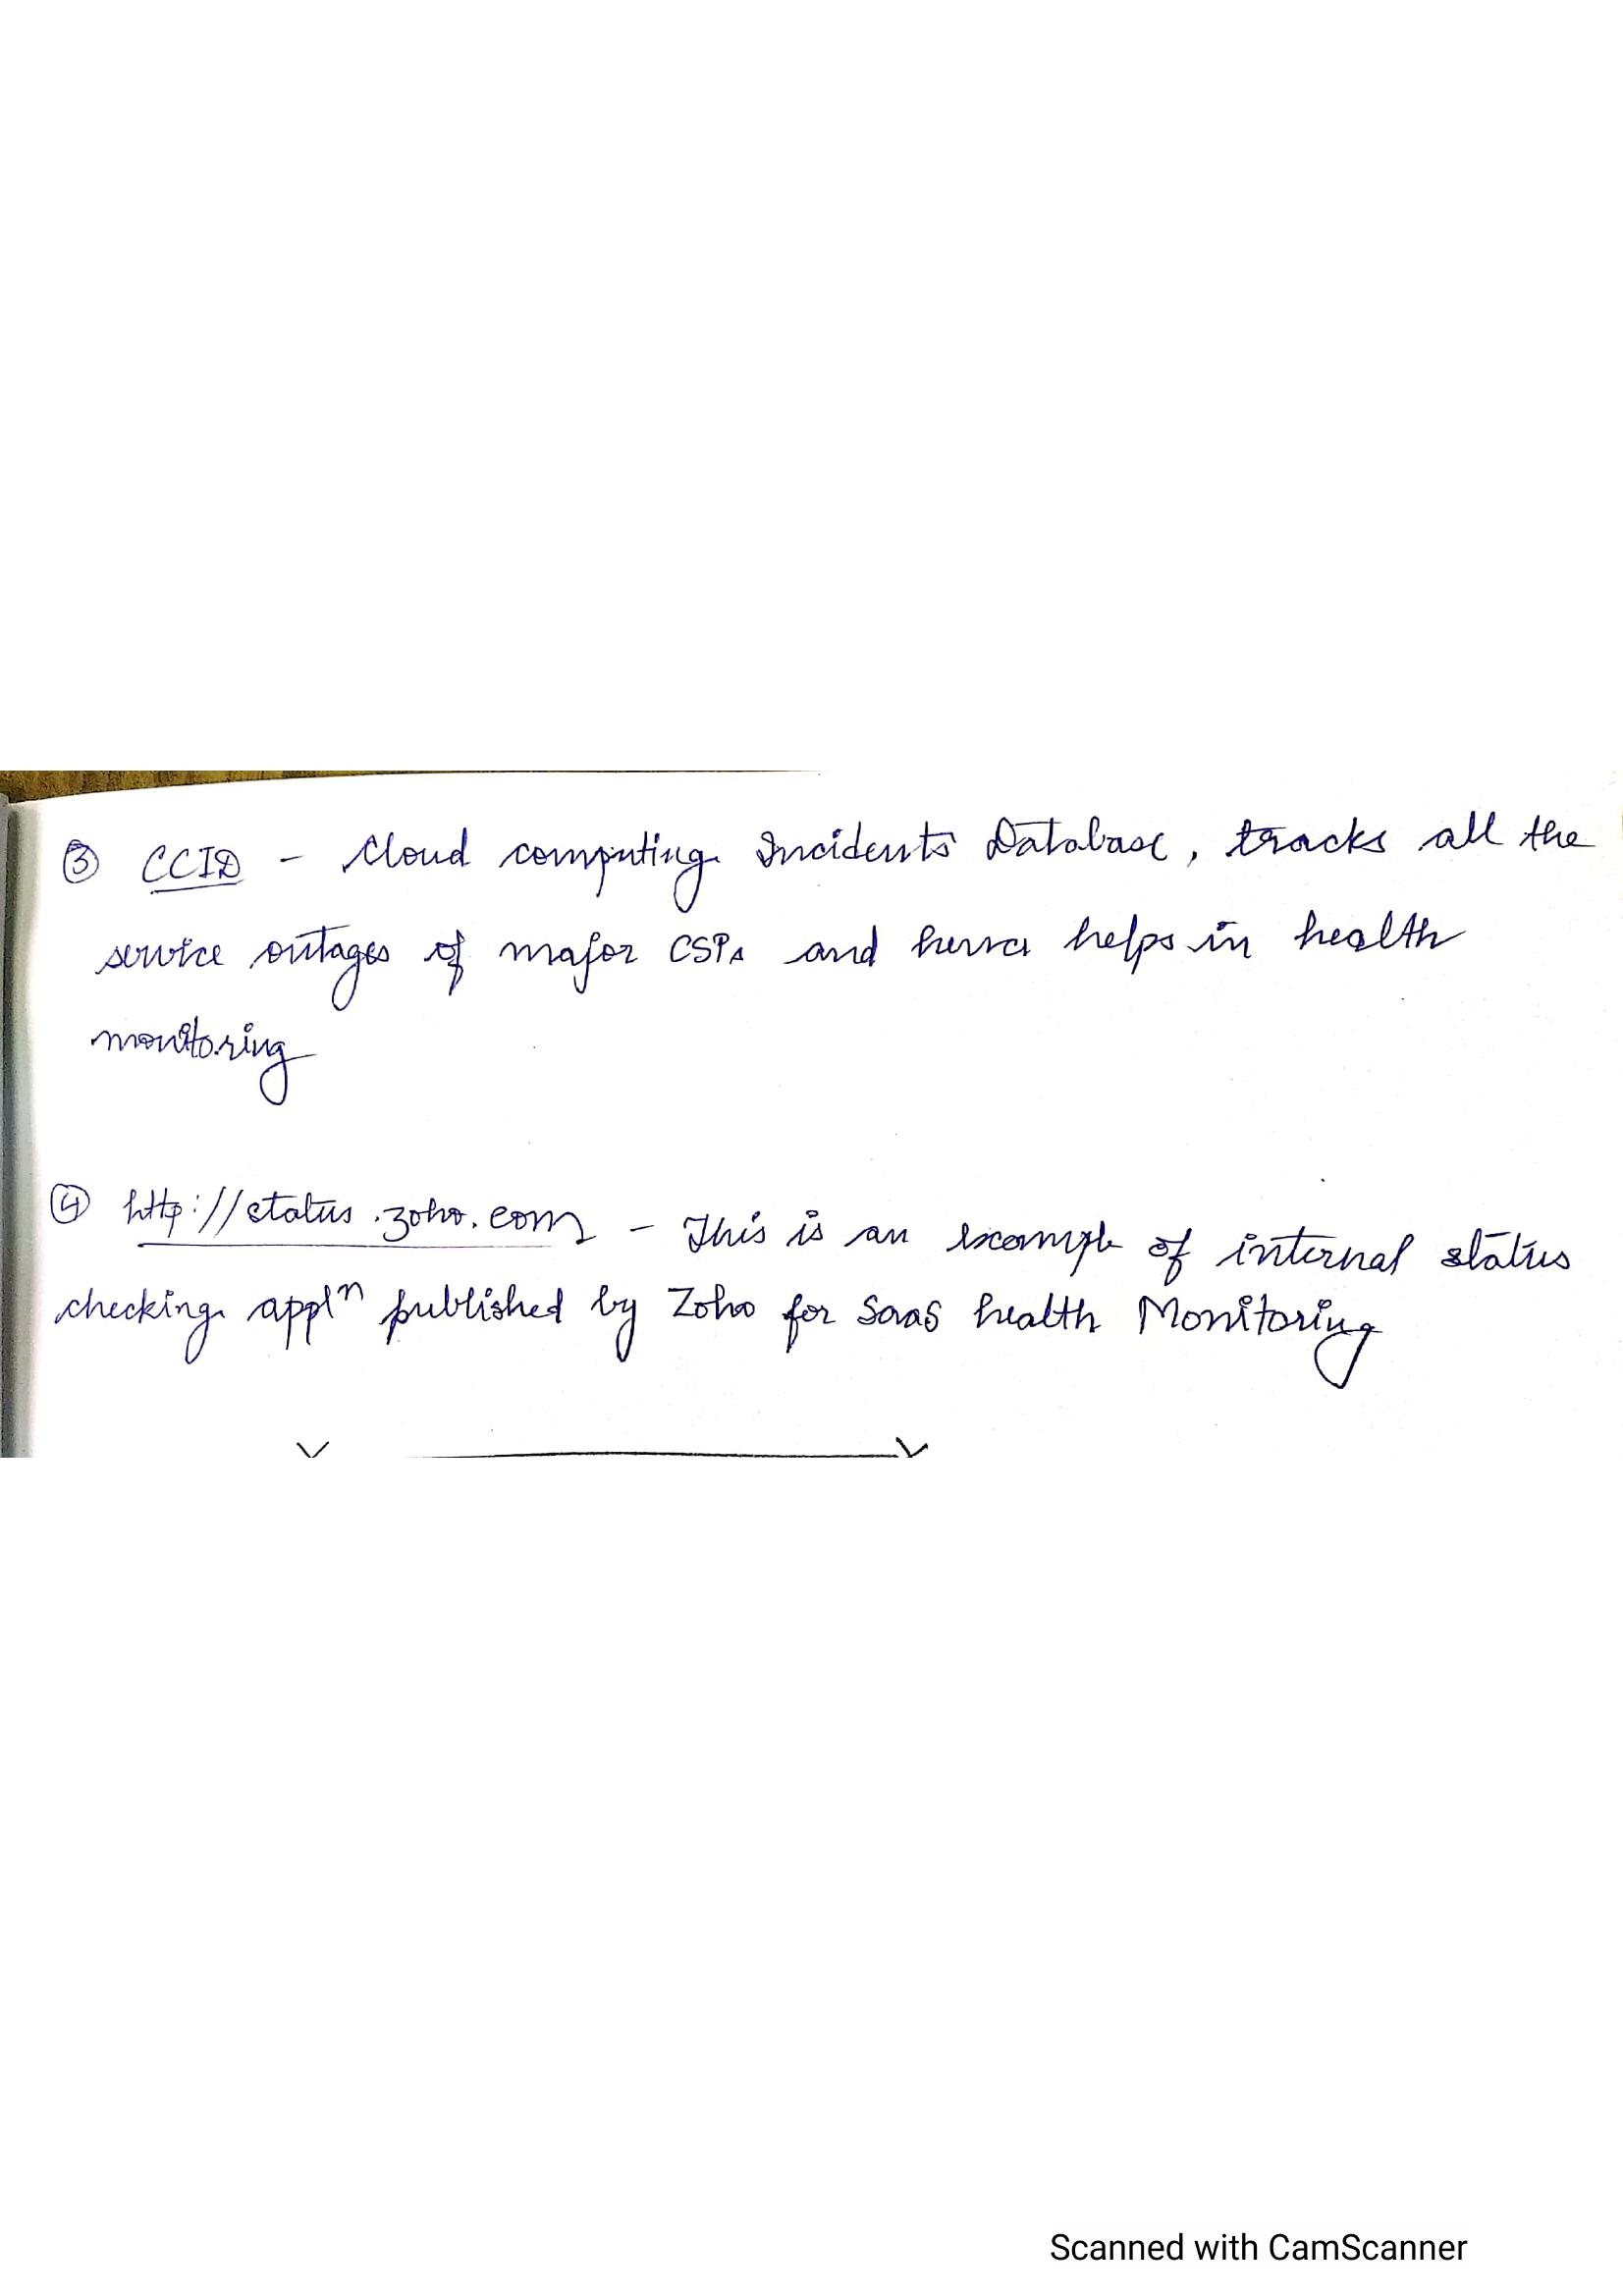 ③ CCID - Cloud computing Incidents Database, tracks all the
service outages of major CSPs and hence helps in health
monitoring
④ http://status.zoho.com - This is an example of internal status
checking applⁿ published by Zoho for SaaS health Monitoring
Scanned with CamScanner